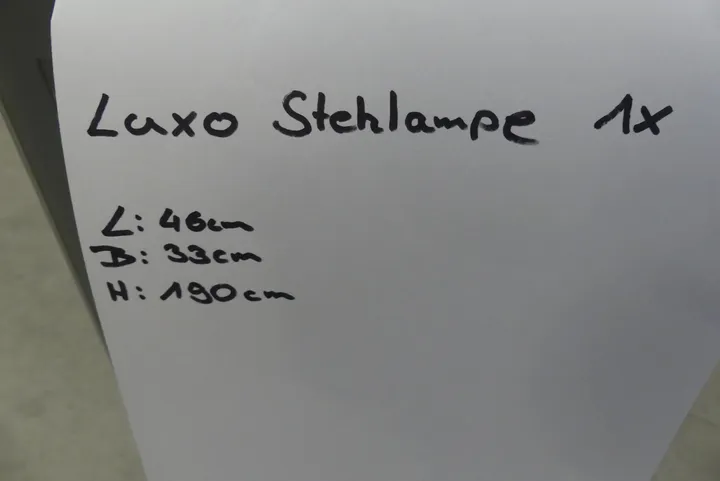 Luxo Stehlampe 1x
L: 46cm
B: 33cm
H: 190cm